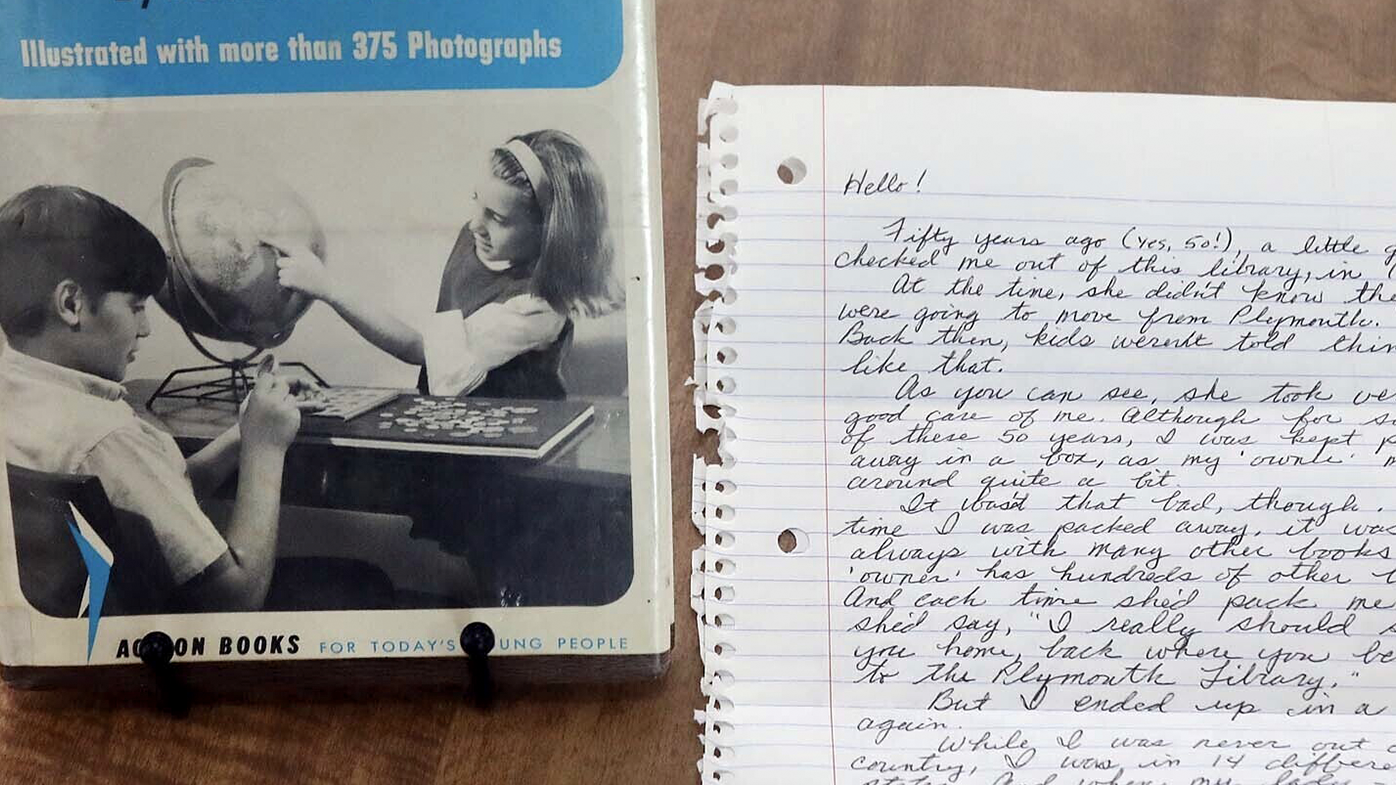 Illustrated with more than 375 Photographs
ACTION BOOKS FOR TODAY'S YOUNG PEOPLE
Hello!
Fifty years ago (yes, 50!), a little g
checked me out of this library, in
At the time, she didn't know the
were going to move from Plymouth.
Back then, kids weren't told thin
like that.
As you can see, she took ve
good care of me. Although for s
of these 50 years, I was kept p
away in a box, as my 'owner' m
around quite a bit.
It wasn't that bad, though.
time I was packed away, it was
always with many other books
'owner' has hundreds of other
And each time she'd pack me
she'd say, "I really should s
you home, back where you be
to the Plymouth Library."
But I ended up in a
again.
While I was never out
country, I was in 14 differe
states. And when my lady